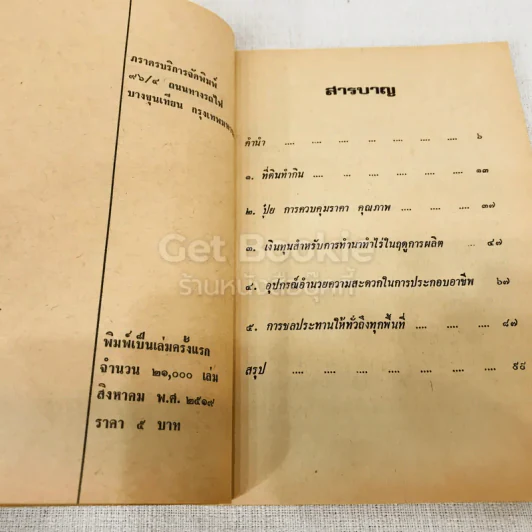 ภราดรบริการจัดพิมพ์
๙๖/๔ ถนนทางรถไฟ
บางขุนเทียน กรุงเทพมหา
พิมพ์เป็นเล่มครั้งแรก
จำนวน ๒๑,๐๐๐ เล่ม
สิงหาคม พ.ศ. ๒๕๑๙
ราคา ๕ บาท
สารบาญ
คำนำ .... .... .... ... .... .... .... ๖
๑. ที่ดินทำกิน .... ... .... .... .... .... ๑๓
๒. ปุ๋ย การควบคุมราคา คุณภาพ .... .... .... ๓๗
๓. เงินทุนสำหรับการทำนาทำไร่ในฤดูการผลิต .. ๔๗
๔. อุปกรณ์อำนวยความสะดวกในการประกอบอาชีพ ๖๗
๕. การชลประทานให้ทั่วถึงทุกพื้นที่ .... .... .... ๘๗
สรุป .... .... .... .... .... .... ๙๙
Get Bookie
ร้านหนังสือบุ๊คกี้